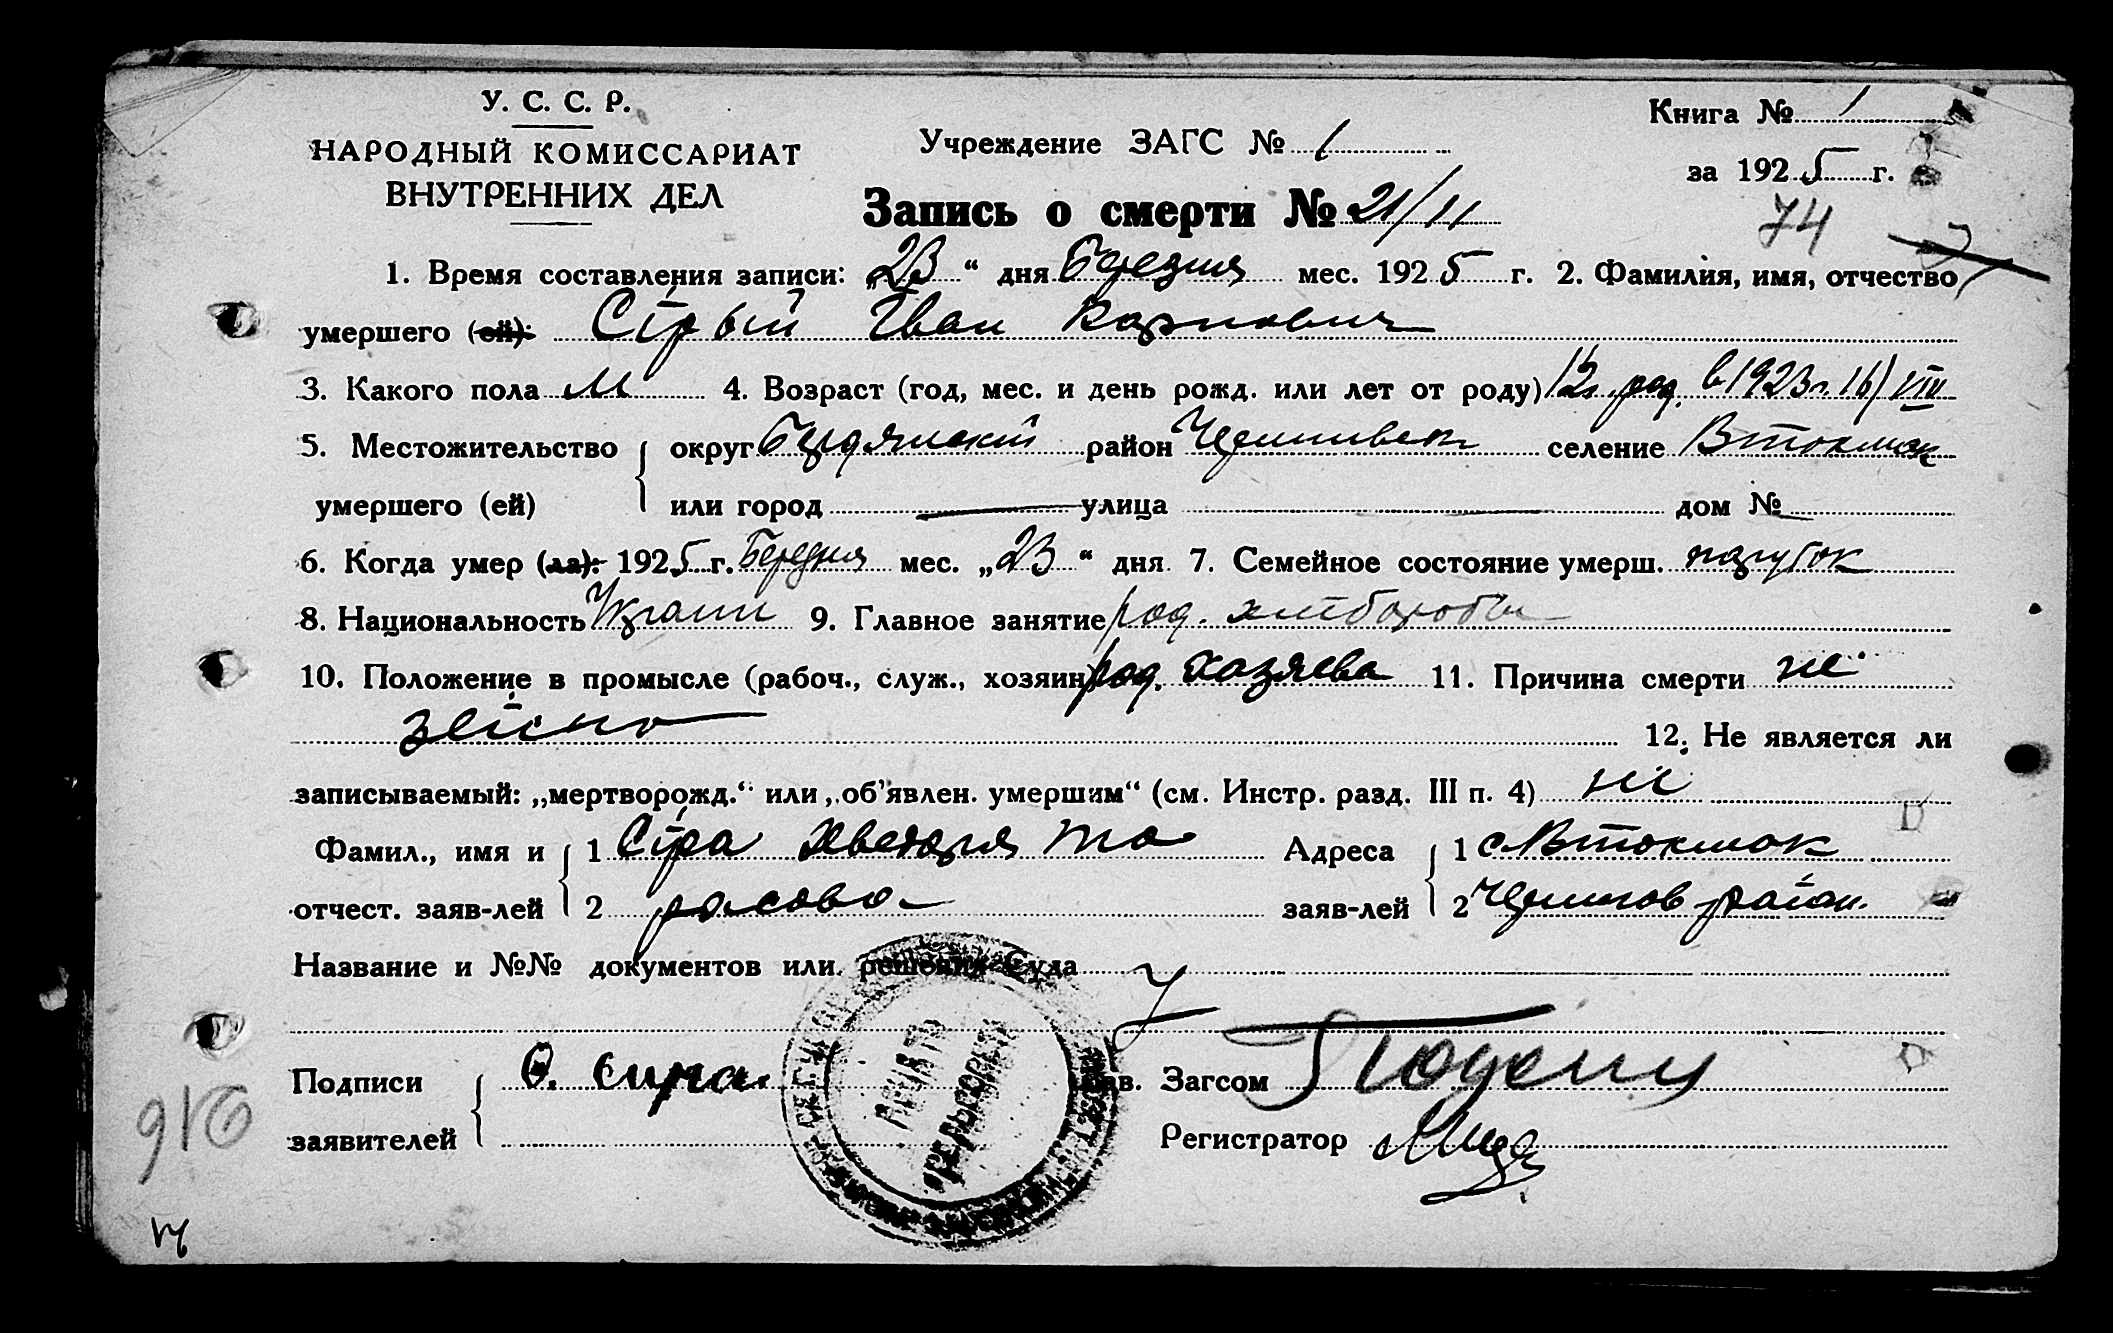 У. С. С. Р.
НАРОДНЫЙ КОМИССАРИАТ
ВНУТРЕННИХ ДЕЛ
Учреждение ЗАГС № 1
Книга № 1
за 1925 г.
Запись о смерти № 21/11
74
1. Время составления записи: „23“ дня Березня мес. 1925 г. 2. Фамилия, имя, отчество
умершего (ей): Сірый Іван Карпович
3. Какого пола М 4. Возраст (год, мес. и день рожд. или лет от роду) род. в 1923 г. 16/VIII
5. Местожительство округ Бердянський район селение В Токмак
умершего (ей) или город — улица — дом № —
6. Когда умер (ла): 1925 г. Березня мес. „23“ дня. 7. Семейное состояние умерш. парубок
8. Национальность Украин 9. Главное занятие род. хлібороби
10. Положение в промысле (рабоч., служ., хозяин) род. хазяева 11. Причина смерти не
звісно 12. Не является ли
записываемый: „мертворожд.“ или „об'явлен. умершим“ (см. Инстр. разд. III п. 4) ні
Фамил., имя и 1 Сіра Хведора Та Адреса 1 с. В Токмак
отчест. заяв-лей 2 расова заяв-лей 2 район
Название и №№ документов или решения Суда
Подписи О. сира. Зав. Загсом
заявителей Регистратор
916